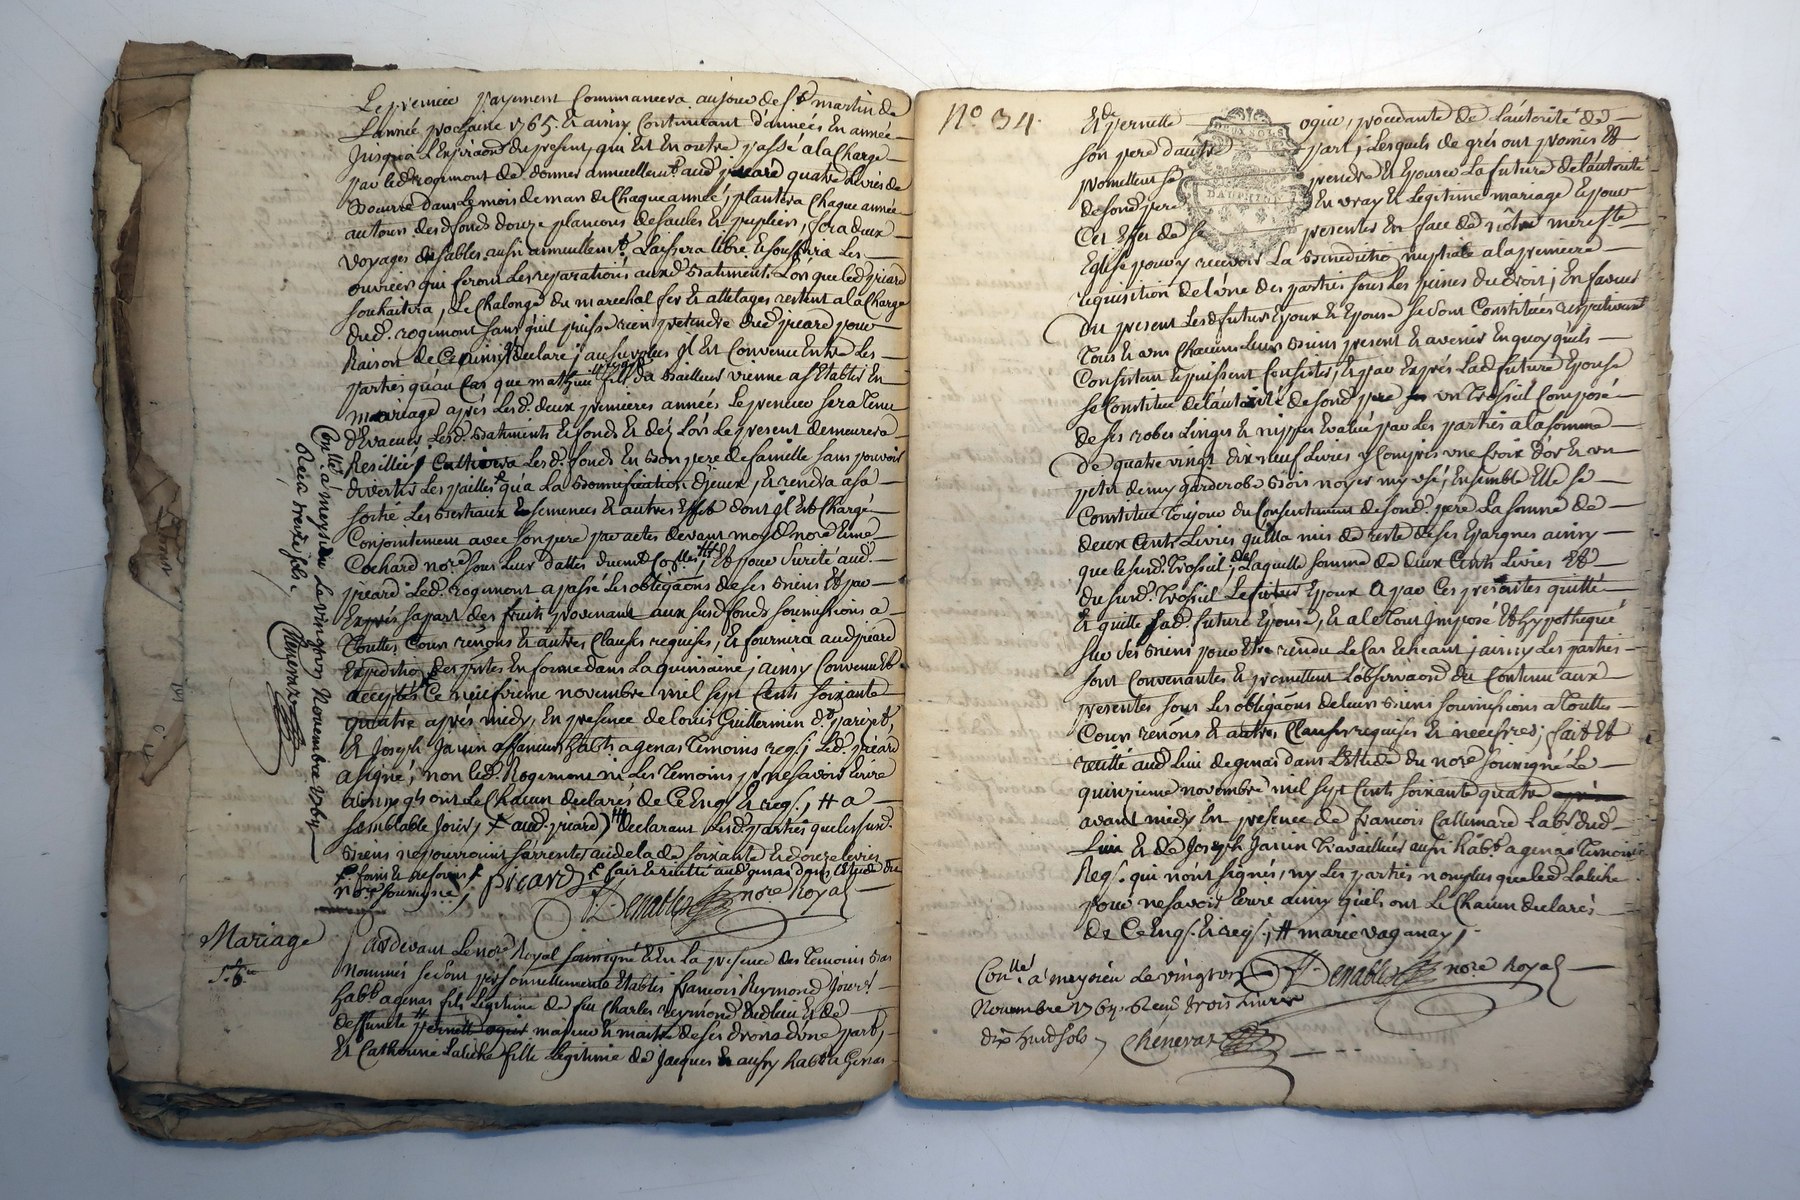 Le premier payement Commancera au jour de st martin de
L'année prochaine 1765. Et ainsy Continuant d'années en année
Jusqua l'Expiraon du present, qui Est En outre passé a la Charge
par led. rogimont de donner annuellemt. aud. picard quatre Livres de
Beurre dans Le mois de mars de Chaque année, plantera Chaque année
autour desd. fonds douze plancons de saules Et pupliers, fera deux
voyages de sables aussi annuellemt. Laissera libre Et souffrira Les
ouvriers qui feront Les reparations auxd. Batiments Lors que led. picard
souhaitera, Le Chalonge du marechal fer Et attelages restent a la Charge
dud. rogimont sans qu'il puisse rien pretendre dud. picard pour
Raison de Ce ainsy declaré, au surplus Il Est Convenu Entre Les
parties qu'au Cas que mathieu fils du Bailleur vienne a s'Etablir En
mariage après Lesd. deux premieres années Le preneur sera Tenu
d'Evacuer Lesd. Batiments Et fonds Et dez Lors Le present demeurera
Resillié, Cultivera Lesd. fonds En Bon pere de famille sans pouvoir
divertir Les pailles qu'a La Bonnification d'jceux, Et rendra a sa
sortie Les Bestiaux Et semences Et autres Effets dont Il Est Chargé
Conjointement avec son pere par actes devant moyd. nore. Et me.
Cochard nore. sous Leur dattes duement Collés, Et pour sureté aud.
picard Led. rogimont a passé Les obligaons de ses Biens Et par
Exprés sa part des fruits provenant aux susd. fonds soumissions a
Touttes Cours renons Et autres Clauses requises, Et fournira aud. picard
Expeditio des pntes En forme dans La quinzaine, ainsy Convenu Et
accepté Ce neufvieme novembre mil sept Cents soixante
quatre après midy, En presence de Louis Guillermin
Et Joseph Janin habts. a genas Temoins req., Led. picard
a signé, non Led. Rogimont ni Les Temoins p. ne savoir Ecrire
ainsy qu'ils ont Le Chacun declarés de Ce Enq. Et req., # a
semblable Jour, declarant Lesd. parties que les susd.
Biens ne pourroient s'arrenter audela de soixante Et douze Livres
fait Et recitté aud. genas dans L'Etude du
nore. soussigné, picard
Denables nore. Royal
Conlé. a meyzieu Le vingt novembre 1764
Receu trente sols
Chenevaz
Mariage
Pardevant Le nore. Royal soussigné Et En La presence des Temoins Bas
nommés se sont personnellement Etablis françois Reymond Jourr.
habt. a genas fils Legitime de feu Charles reymond dud. lieu Et de
deffuncte # majeur Et maitre de ses droits d'une part,
Et Catherine Laliche fille Legitime de Jacques Et aussy habt. a Genas
No. 34.
Et de pernette ogier, procedante de L'autorité de
son pere d'autre part, Lesquels de gré ont promis Et
promettent se prendre Et Epouser La future de l'autorité
de sond. pere En vray Et Legitime mariage Et pour
Cet Effet de se presenter En face de nôtre mere ste.
Eglise pour y recevoir La Benedictio nuptiale a la premiere
requisition de L'une des parties sous Les peines du Droit, En faveur
du present Lesd. futurs Epoux Et Epouse se sont Constitués respectivement
Tous Et uns Chacuns Leurs Biens present Et avenir En quoy qu'ils
Consistent Et puissent Consister, Et par Exprés Lad. future Epouse
se Constitue de L'autorité de sond. pere un Trossel Composé
de ses robes Linges Et nippes Evalué par Les parties a la somme
de quatre vingt dix neuf Livres y Compris une Croix d'or Et un
petit demy garderobe Bois noyer my usé, Ensemble Elle se
Constitue Toujour du Consentement de sond. pere La somme de
deux Cents Livres quElla mis de reste de ses Epargnes ainsy
que le susd. Trossel, de Laquelle somme de deux Cents Livres Et
du susd. Trossel Le futur Epoux a par Ces presentes quitté
Et quitte sad. future Epouse, Et a le Tout Imposé Et hypothequé
sur ses Biens pour Etre rendu Le Cas Echeant, ainsy Les parties
sont Convenantes Et promettent L'observaon du Contenu aux
presentes sous Les obligaons de leurs Biens soumissions a Touttes
Cours renons Et autres Clauses requises Et necessres.; fait Et
recitté aud. lieu de genas dans L'Etude du nore. soussigné Le
quinzieme novembre mil sept Cents soixante quatre
avant midy En presence de françois Callemard Labr. dud.
Lieu Et de Joseph Janin Travailleur aussi habt. a genas Temoins
Req. qui n'ont signés, ny Les parties non plus que led. Laliche
pour ne savoir Ecrire ainsy qu'ils ont Le Chacun declarés
de Ce Enq. Et req., # marie vaganay,
Denables nore. Royal
Conlé. a meyzieu Le vingt
Novembre 1764. Receu Trois Livres
dix huit sols
Chenevaz
DEUX SOLS
DAUPHINÉ